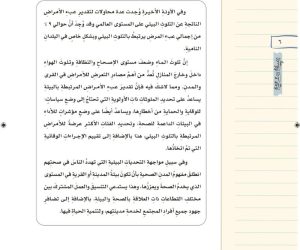 وفي الآونة الأخيرة وُجدت عدة محاولات لتقدير عبء الأمراض
الناتجة عن التلوث البيئي على المستوى العالمي وقد وُجد أنَّ حوالي ٤٩
من إجمالي عبء المرض يرتبط بالتلوث البيئي وبشكل خاص في البلدان
النامية.
إنَّ تلوث الماء وضعف مستوى الإصحاح والنظافة وتلوث الهواء
داخل وخارج المنازل تُعدُّ من أهمِّ مصادر التعرض للأمراض في القرى
والمدن. ومما لاشك فيه فإنَّ تقدير عبء الأمراض المرتبطة بالبيئة
يساعد على تحديد الملوثات ذات الأولوية التي تحتاج إلى وضع سياسات
للوقاية والحماية من أخطارها. ويساعد أيضا على وضع مؤشرات للأداء
في البيئات الداعمة للصحة، وتحديد الفئات الأكثر عرضةً للأمراض
المرتبطة بالتلوث البيئي، هذا بالإضافة إلى تقييم الإجراءات الوقائية
التي تمَّ اتخاذُها.
وفي سبيل مواجهة التحديات البيئية التي تهددُ الناسَ في صحتهم
انطلق مفهومُ المدن الصحية بأن تكون بيئة المدينة أو القرية في المستوى
الذي يخدمُ الصحةَ ويعززها. وهذا يستدعي التنسيق والعمل المشترك بين
مختلف القطاعات ذات العلاقة بالصحة والبيئة، بالإضافة إلى تضافر
جهود جميع أفراد المجتمع لخدمة مدينتهم، ولتنمية الحياة فيها.
٦